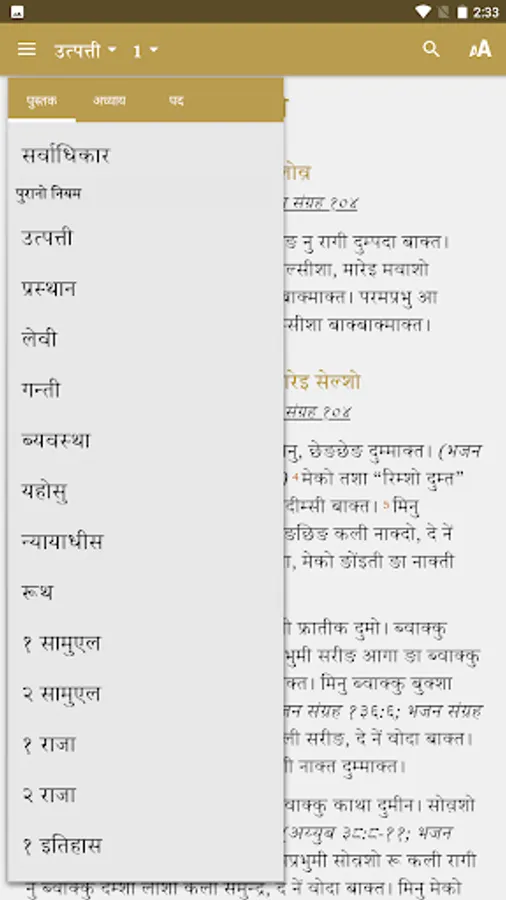 2:33
उत्पत्ती 1 AA
पुस्तक अध्याय पद
सर्वाधिकार
पुरानो नियम
उत्पत्ती
प्रस्थान
लेवी
गन्ती
ब्यवस्था
यहोसु
न्यायाधीस
रूथ
१ सामुएल
२ सामुएल
१ राजा
२ राजा
१ इतिहास
संग्रह १०४
ङ नु रागी दुम्पदा बाक्त।
ल्सीशा, मारेइ मवाशो
बाक्माक्त। परमप्रभु आ
सीशा बाक्बाक्माक्त।
रेइ सेल्शो
संग्रह १०४
नु, छेङछेङ दुम्माक्त। (भजन
) ४ मेको तशा “रिम्शो दुम्त”
दीम्सी बाक्त। ५ मिनु
ङछिङ कली नाक्दो, दे नें
ा, मेको ङोंइती ङा नाक्ती
ी फ्रातीक दुमो। ब्वाक्कु
भुमी सरीङ आगा ङा ब्वाक्कु
क्त। मिनु ब्वाक्कु बुक्शा
जन संग्रह १३६:६; भजन संग्रह
ली सरीङ, दे नें वोदा बाक्त।
ी नाक्त दुम्माक्त।
वाक्कु काथा दुमीन। सोव़शो
(अय्युब ३८:८-११; भजन
प्रभुमी सोव़शो रू कली रागी
नु ब्वाक्कु दम्शा लाशो कली समुन्द्र, दे नें वोदा बाक्त। मिनु मेको